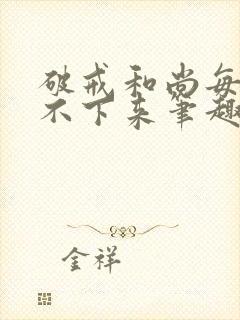 破戒和尚每
不下来笔趣
金祥